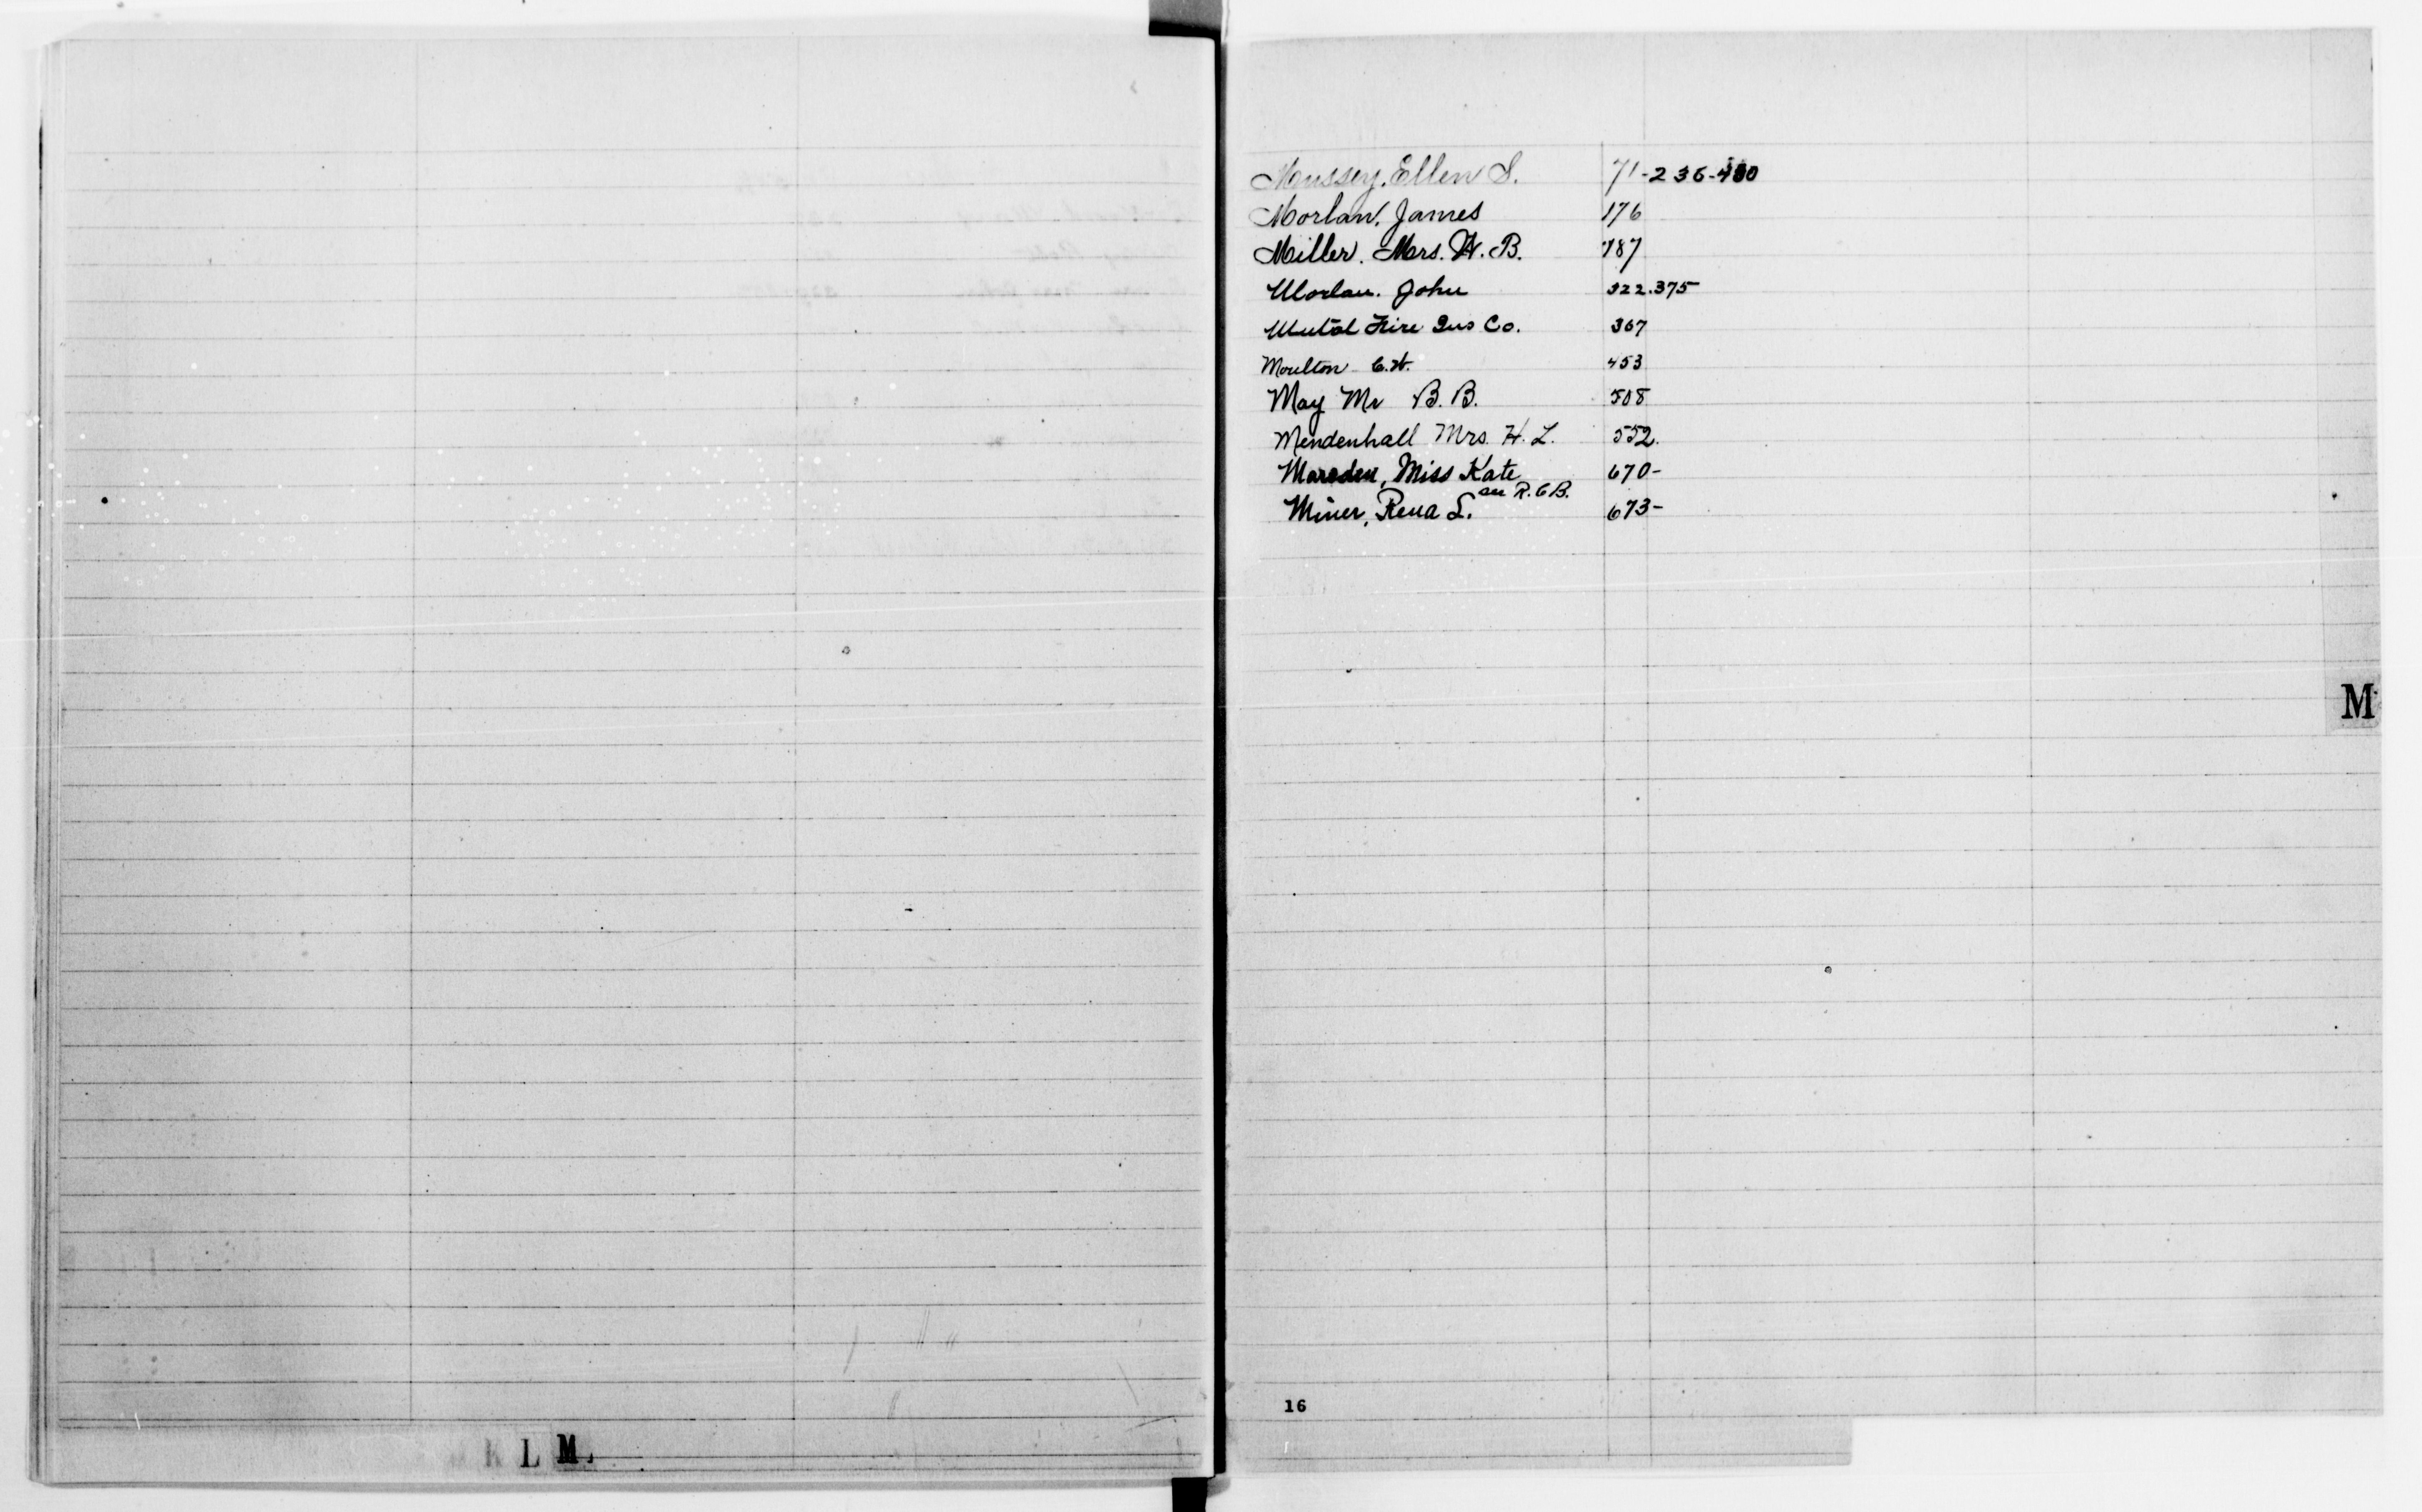 Mussey, Ellen S. 71-236-480
Morlan, James 176
Miller. Mrs. H. B. 187
Morlan. John 322.375
Mutal Fire Ins Co. 367
Moulton C.H. 453
May Mr B. B. 508
Mendenhall Mrs. H. L. 552.
Marsden, Miss Kate 670-
see R. C B.
Miner, Rena L. 673-
M
16
K L M